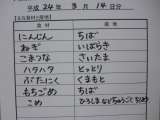 平成 24年 3月 14日分
食材 産地
にんじん ちば
ねぎ いばらき
こまつな さいたま
ハタハタ とっとり
ばたにく くまもと
もちごめ ちば
こめ ひろしまなどちゅうごくちほう